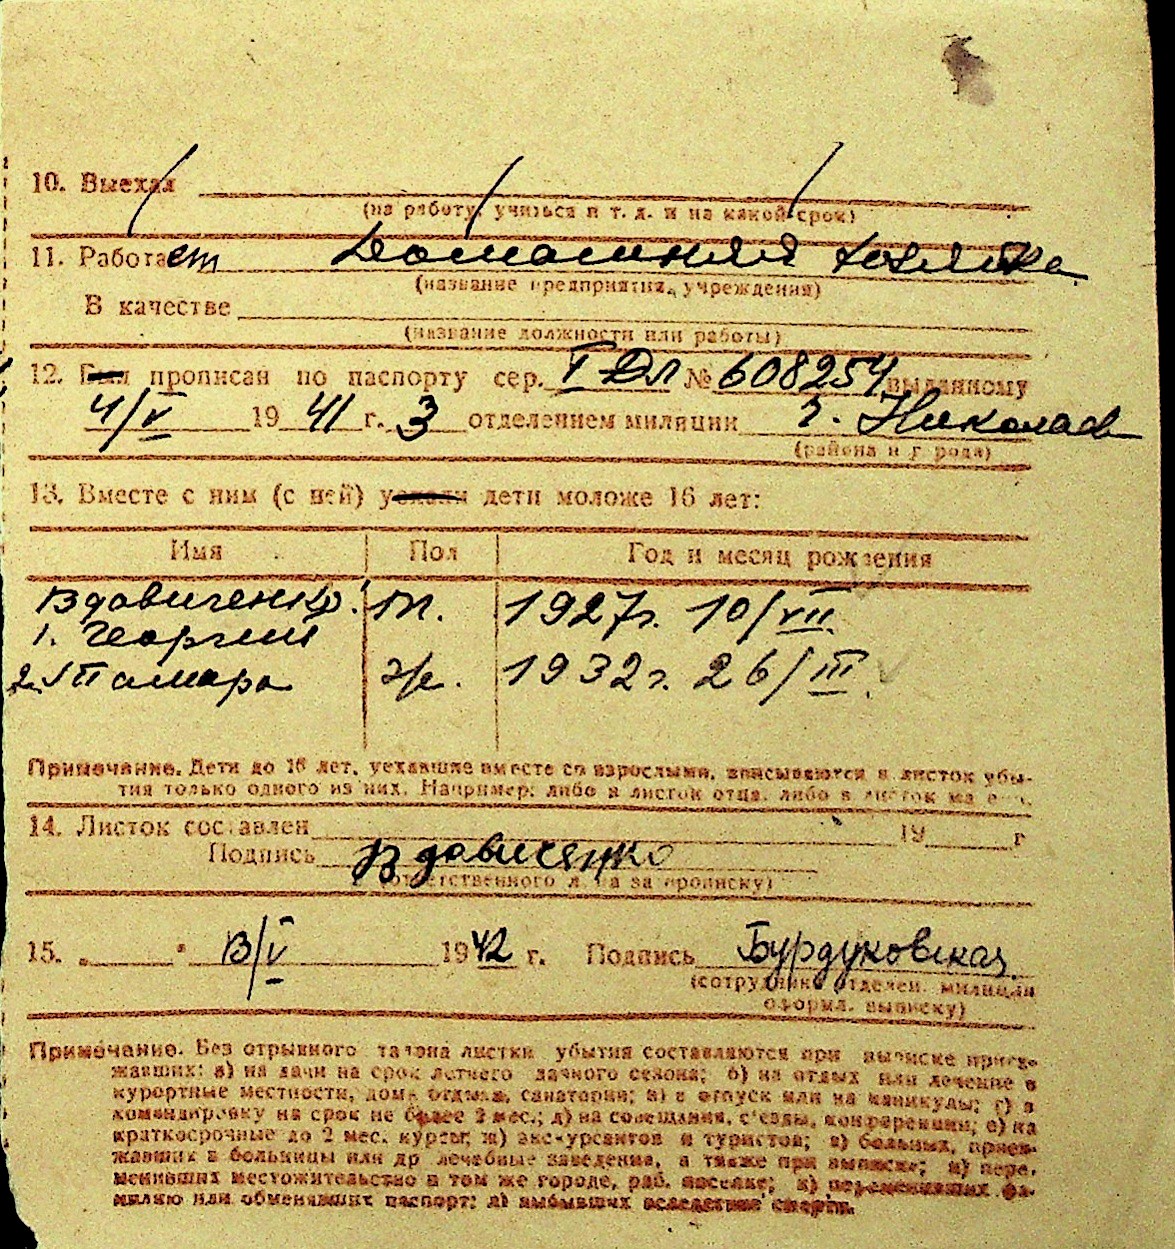 10. Выехал
(на работу, учиться и т. д. и на какой срок)
11. Работает Домашняя хозяйка
(название предприятия, учреждения)
В качестве
(название должности или работы)
12. Был прописан по паспорту сер. I ДЛ № 608254 выданному
4/V 1941 г. 3 отделением милиции г. Николаев
(района и города)
13. Вместе с ним (с ней) уехали дети моложе 16 лет:
Имя Пол Год и месяц рождения
Вдовиченко
1. Георгий м. 1927 г. 10/VII
2. Тамара ж. 1932 г. 26/III
Примечание. Дети до 16 лет, уехавшие вместе со взрослыми, вписываются в листок убы-
тия только одного из них. Например: либо в листок отца, либо в листок матери.
14. Листок составлен 19 г
Подпись Вдовиченко
(ответственного лица за прописку)
15. „ " 13/V 1942 г. Подпись Бурдуковская
(сотрудника отделен. милиции
оформл. выписку)
Примечание. Без отрывного талона листки убытия составляются при выписке приез-
жавших: а) на дачи на срок летнего дачного сезона; б) на отдых или лечение в
курортные местности, дома отдыха, санатории; в) в отпуск или на каникулы; г) в
командировку на срок не более 2 мес.; д) на совещания, съезды, конференции; е) на
краткосрочные до 2 мес. курсы; ж) экскурсантов и туристов; з) больных, приез-
жавших в больницы или др лечебные заведения, а также при выписке; и) пере-
менивших местожительство в том же городе, раб. поселке; к) переменивших фа-
милию или обменявших паспорт; л) выбывших вследствие смерти.